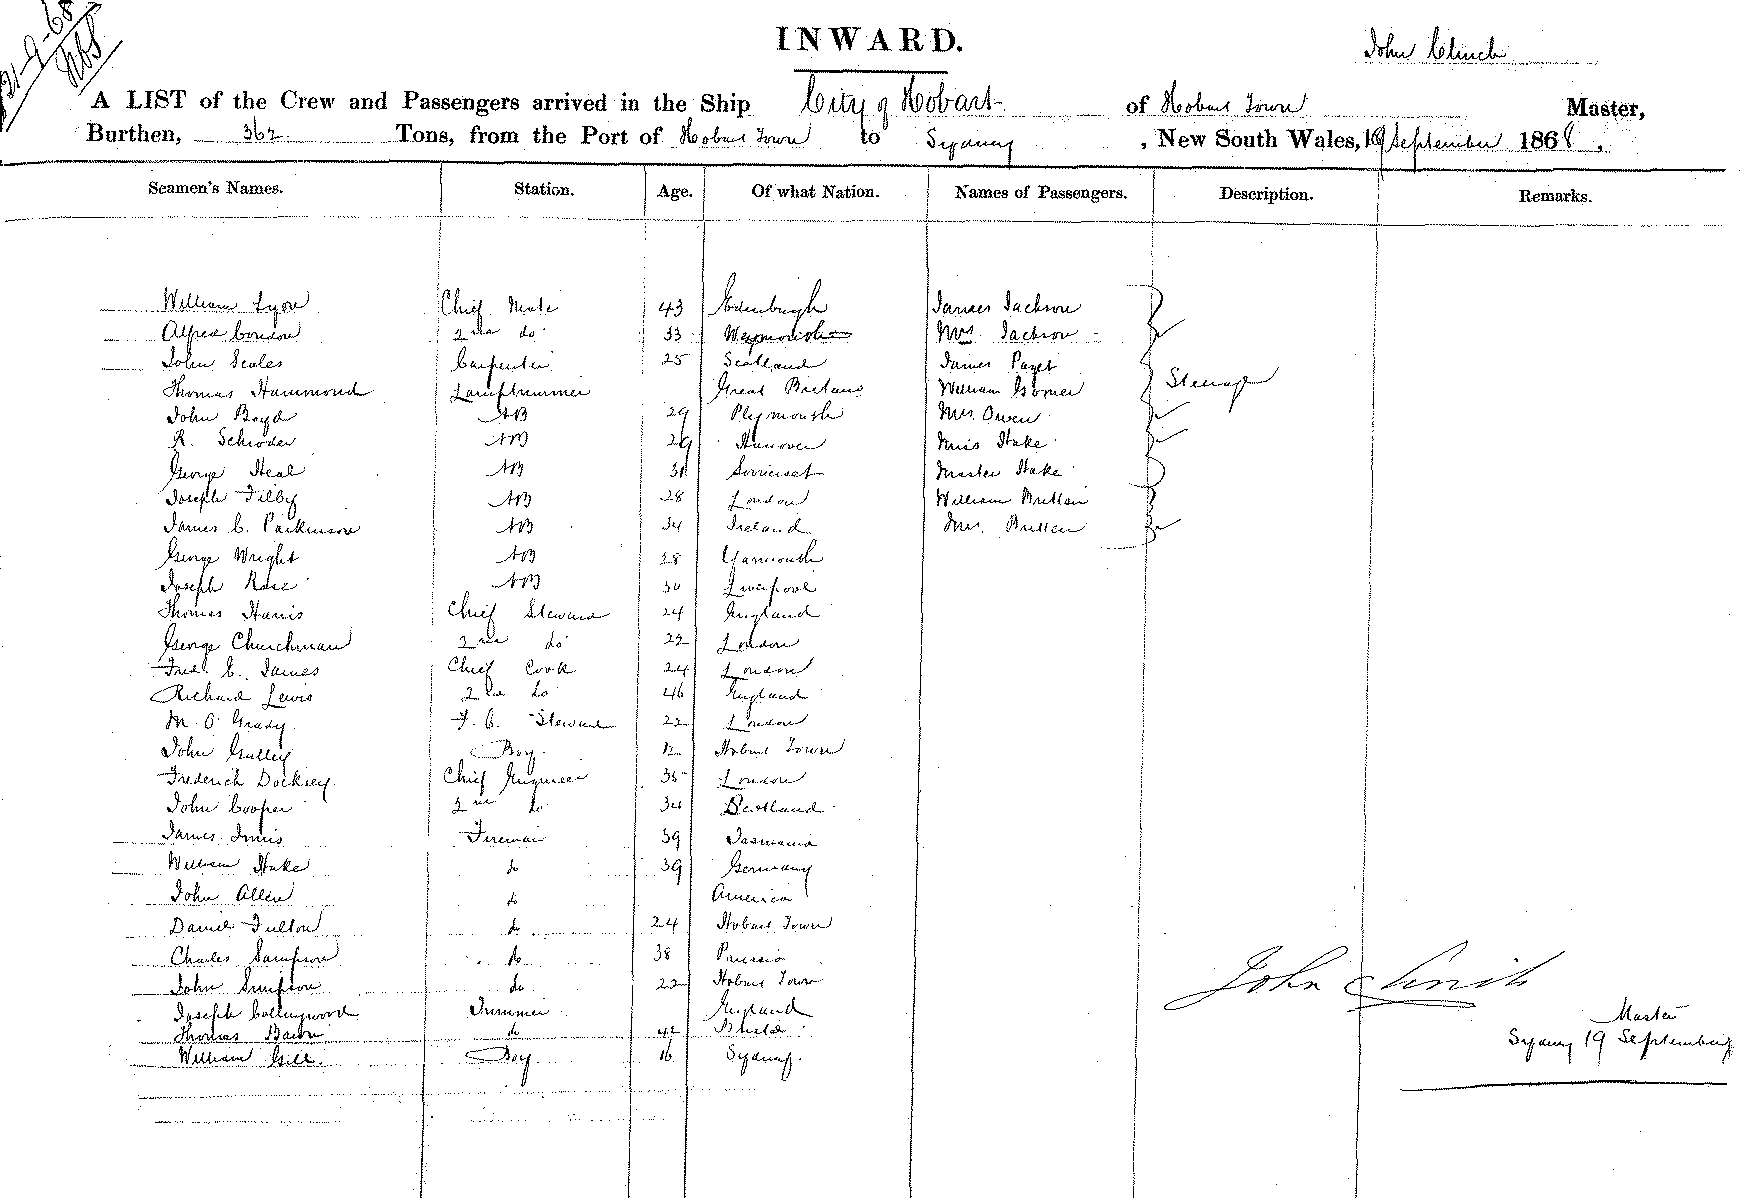 21-9-68
INWARD.
John Clinch
A LIST of the Crew and Passengers arrived in the Ship City of Hobart of Hobart Town Master,
Burthen, 362 Tons, from the Port of Hobart Town to Sydney, New South Wales, 19 September 1868.
Seamen's Names. Station. Age. Of what Nation. Names of Passengers. Description. Remarks.
William Lyon Chief Mate 43 Edinburgh James Jackson
Alfred Condon 2nd do 33 Weymouth Mrs. Jackson
John Scales Carpenter 25 Scotland James Paget
Thomas Hammond Lamptrimmer Great Britain William Steerage
John Boyd AB 29 Plymouth Mrs. Owen
R. Schroder AB 29 Hanover Miss Hake
George Heal AB 31 Somerset Master Hake
Joseph Filby AB 28 London William Britten
James C. Parkinson AB 34 Ireland Mrs. Britten
George Wright AB 28 Yarmouth
Joseph AB 30 Liverpool
Thomas Harris Chief Steward 24 England
George Churchman 2nd do 22 London
Fred. C. James Chief Cook 24 London
Richard Lewis 2nd do 46 England
M. O'Grady F. C. Steward 22 London
John Gulley Boy 12 Hobart Town
Frederich Docksey Chief Engineer 35 London
John Cooper 2nd do 34 Scotland
James Innis Fireman 39 Tasmania
William Hake do 39 Germany
John Allen do America
Daniel Fulton do 24 Hobart Town
Charles Sampson do 38 Prussia
John Simpson do 22 Hobart Town
Joseph Collingwood Trimmer England
Thomas Bacon do 42
William Gill Boy 16 Sydney
John Clinch
Master
Sydney 19 September